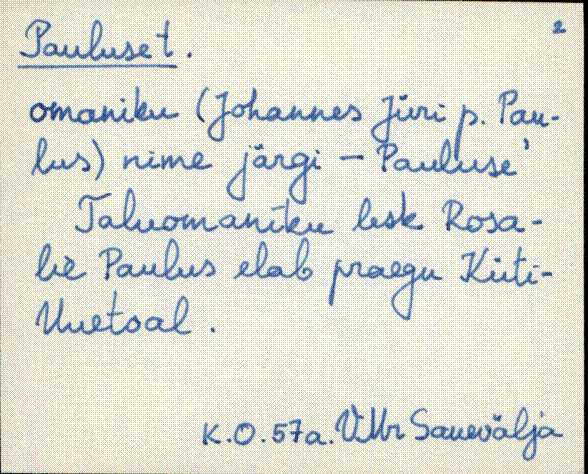 2
Pauluse t.
omaniku (Johannes Jüri p. Pau-
lus) nime järgi – Pauluse'
Taluomaniku lesk Rosa-
lie Paulus elab praegu Kiiti-
Uuetoal.
K.O.57a. V.Mr Sauevälja